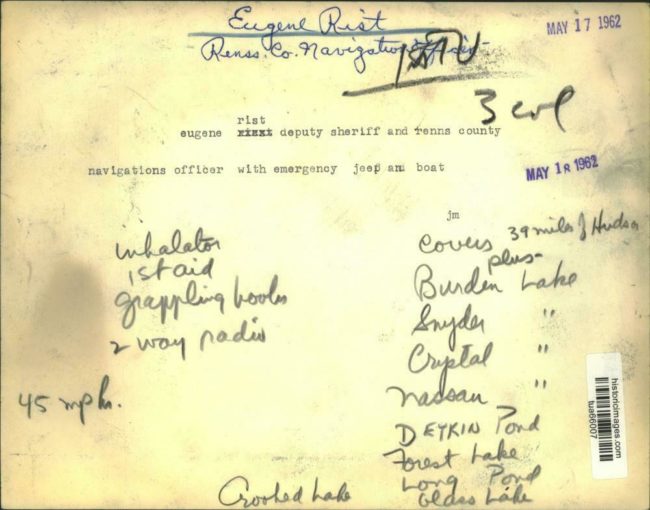 Eugene Rist
MAY 17 1962
Renss. Co. Navigation
3 col
rist
eugene deputy sheriff and renns county
navigations officer with emergency jeep and boat
MAY 18 1962
jm
inhalator
1st aid
grappling hooks
2 way radio
45 mph.
covers 39 miles of Hudson
plus-
Burden Lake
Snyder "
Cryptal "
Nassau "
DEYKIN Pond
Forest Lake
Long Pond
Glass Lake
Crooked Lake
historicimages.com
tua66007